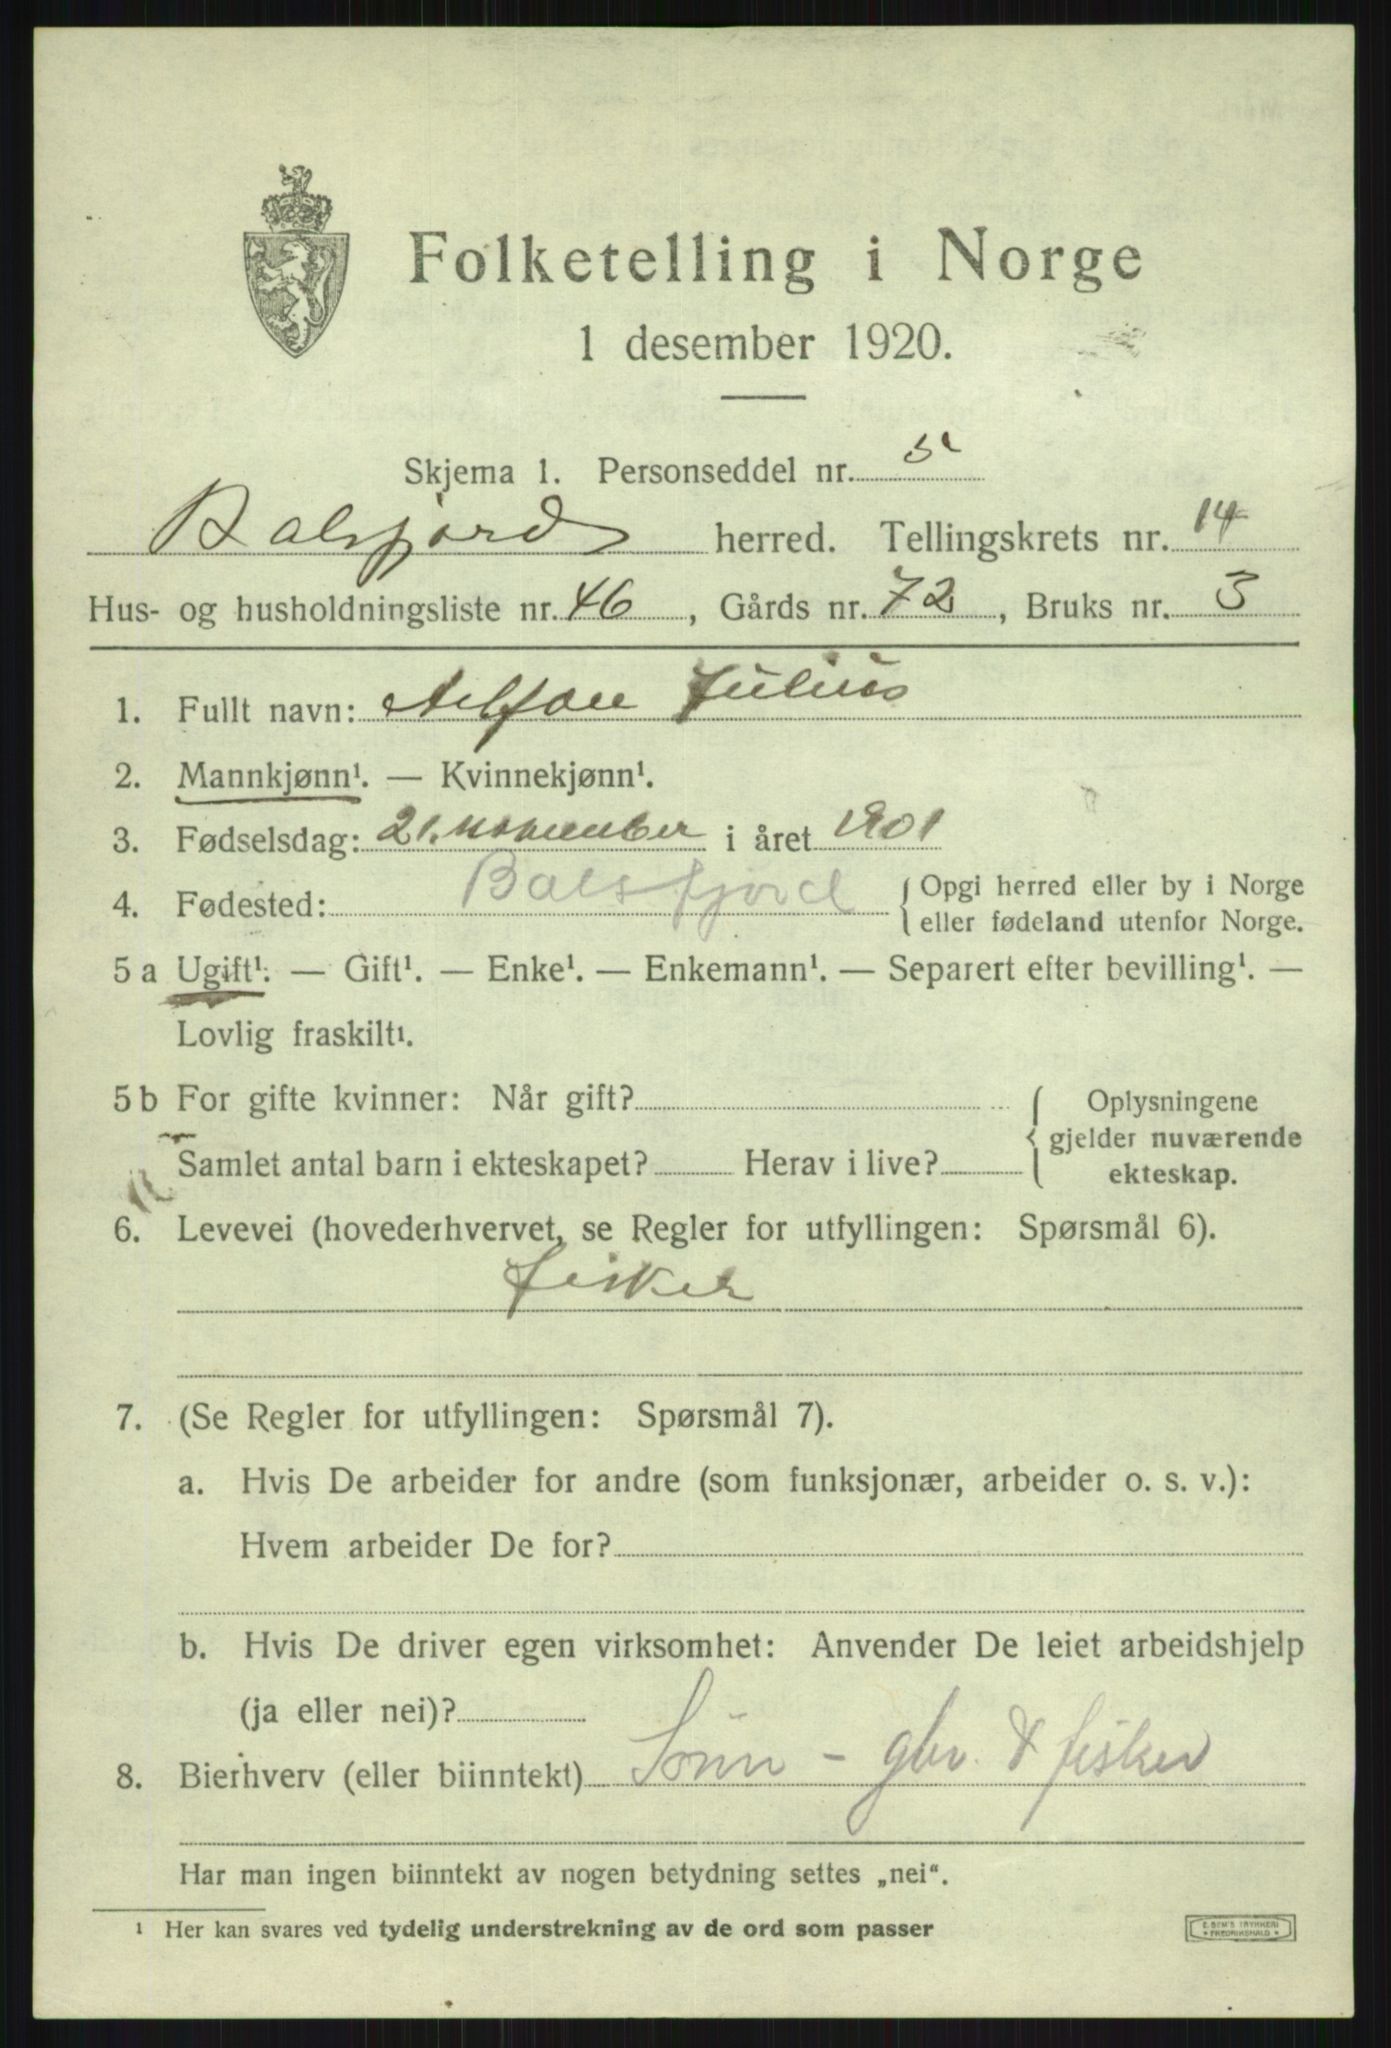 Folketelling i Norge
1 desember 1920.
Skjema 1. Personseddel nr. 5
Balsfjord herred. Tellingskrets nr. 14
Hus- og husholdningsliste nr. 46, Gårds nr. 72, Bruks nr. 3
1. Fullt navn: Julius
2. Mannkjønn¹. — Kvinnekjønn¹.
3. Fødselsdag: 21. november i året 1901
4. Fødested: Balsfjord { Opgi herred eller by i Norge
eller fødeland utenfor Norge.
5 a Ugift¹. — Gift¹. — Enke¹. — Enkemann¹. — Separert efter bevilling¹. —
Lovlig fraskilt¹.
5 b For gifte kvinner: Når gift? { Oplysningene
gjelder nuværende
Samlet antal barn i ekteskapet? Herav i live?
ekteskap.
6. Levevei (hovederhvervet, se Regler for utfyllingen: Spørsmål 6).
fisker
7. (Se Regler for utfyllingen: Spørsmål 7).
a. Hvis De arbeider for andre (som funksjonær, arbeider o. s. v.):
Hvem arbeider De for?
b. Hvis De driver egen virksomhet: Anvender De leiet arbeidshjelp
(ja eller nei)?
8. Bierhverv (eller biinntekt) Sönn - gbr. & fisker
Har man ingen biinntekt av nogen betydning settes „nei“.
¹ Her kan svares ved tydelig understrekning av de ord som passer
E. SEM'S TRYKKERI
FREDRIKSHALD